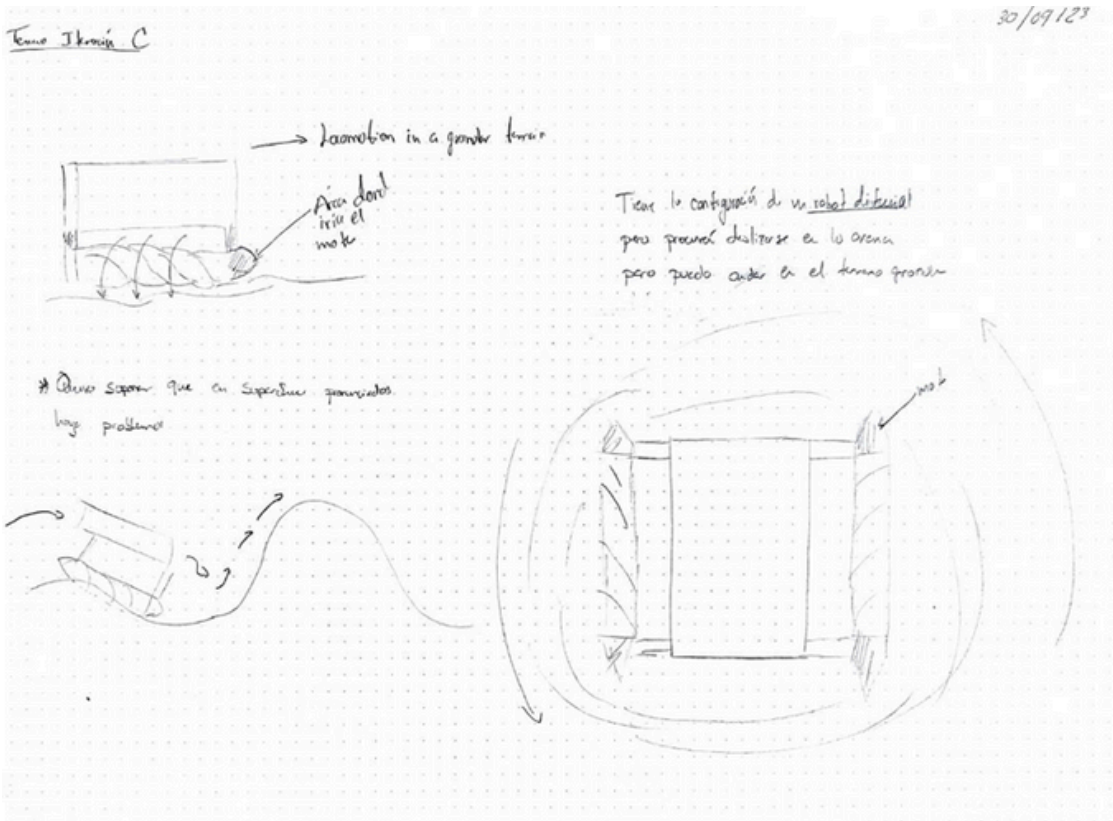 30/09/23
Iteración C
Locomotion in a granular terrain
Área dond
iria el
moto
Tiene la configuración de un robot diferencial
pero deslizarse en la arena
pero puede andar en el terreno
* suponer que en superficies pronunciadas
haya problemas
mot